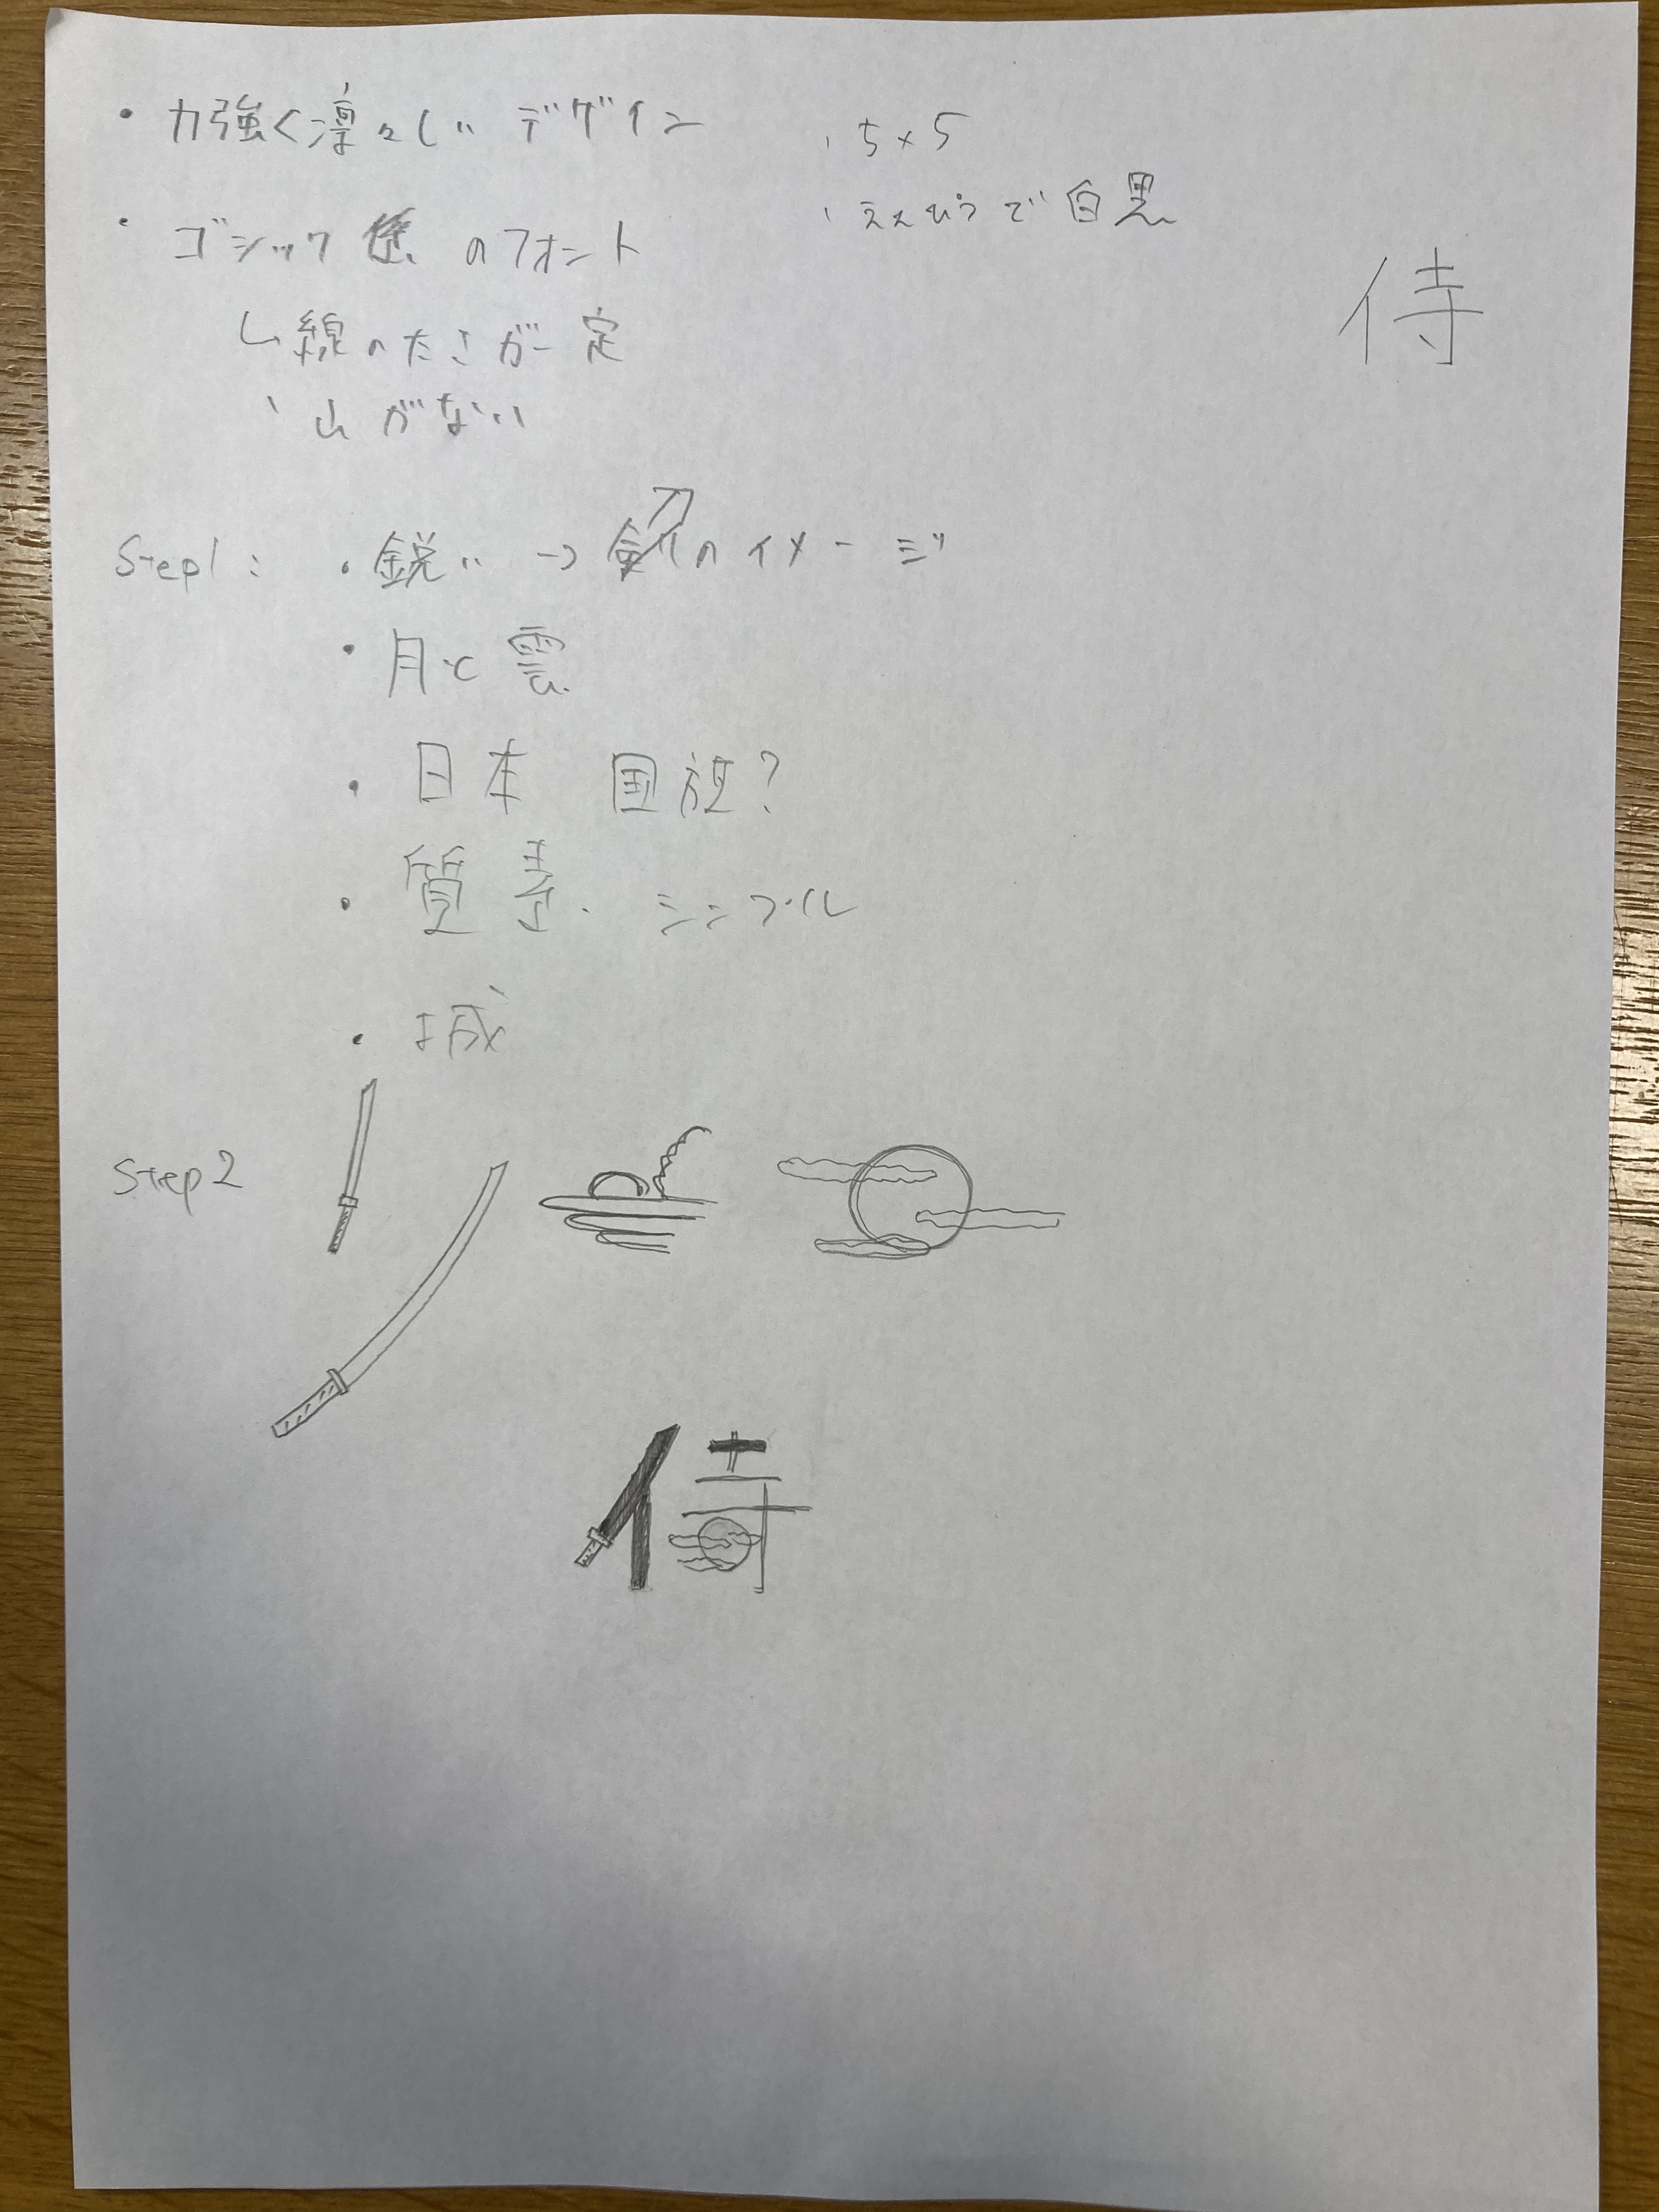 ・力強く凛々しいデザイン
・ゴシック系のフォント
↳線の太さが一定
・山がない
・5×5
・えんぴつで白黒
侍
Step1: ・鋭い → 刀のイメージ
・月と雲
・日本 国旗?
・質素. シンプル
・城
Step2
侍